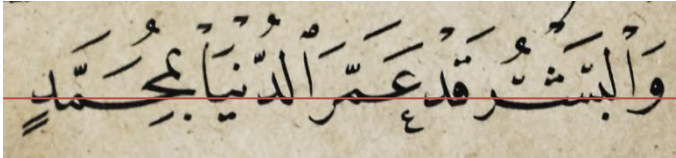 وَالْبَشَرُ قَدْ عَمَّرَ الدُّنْيَا بِمُحَمَّدٍ